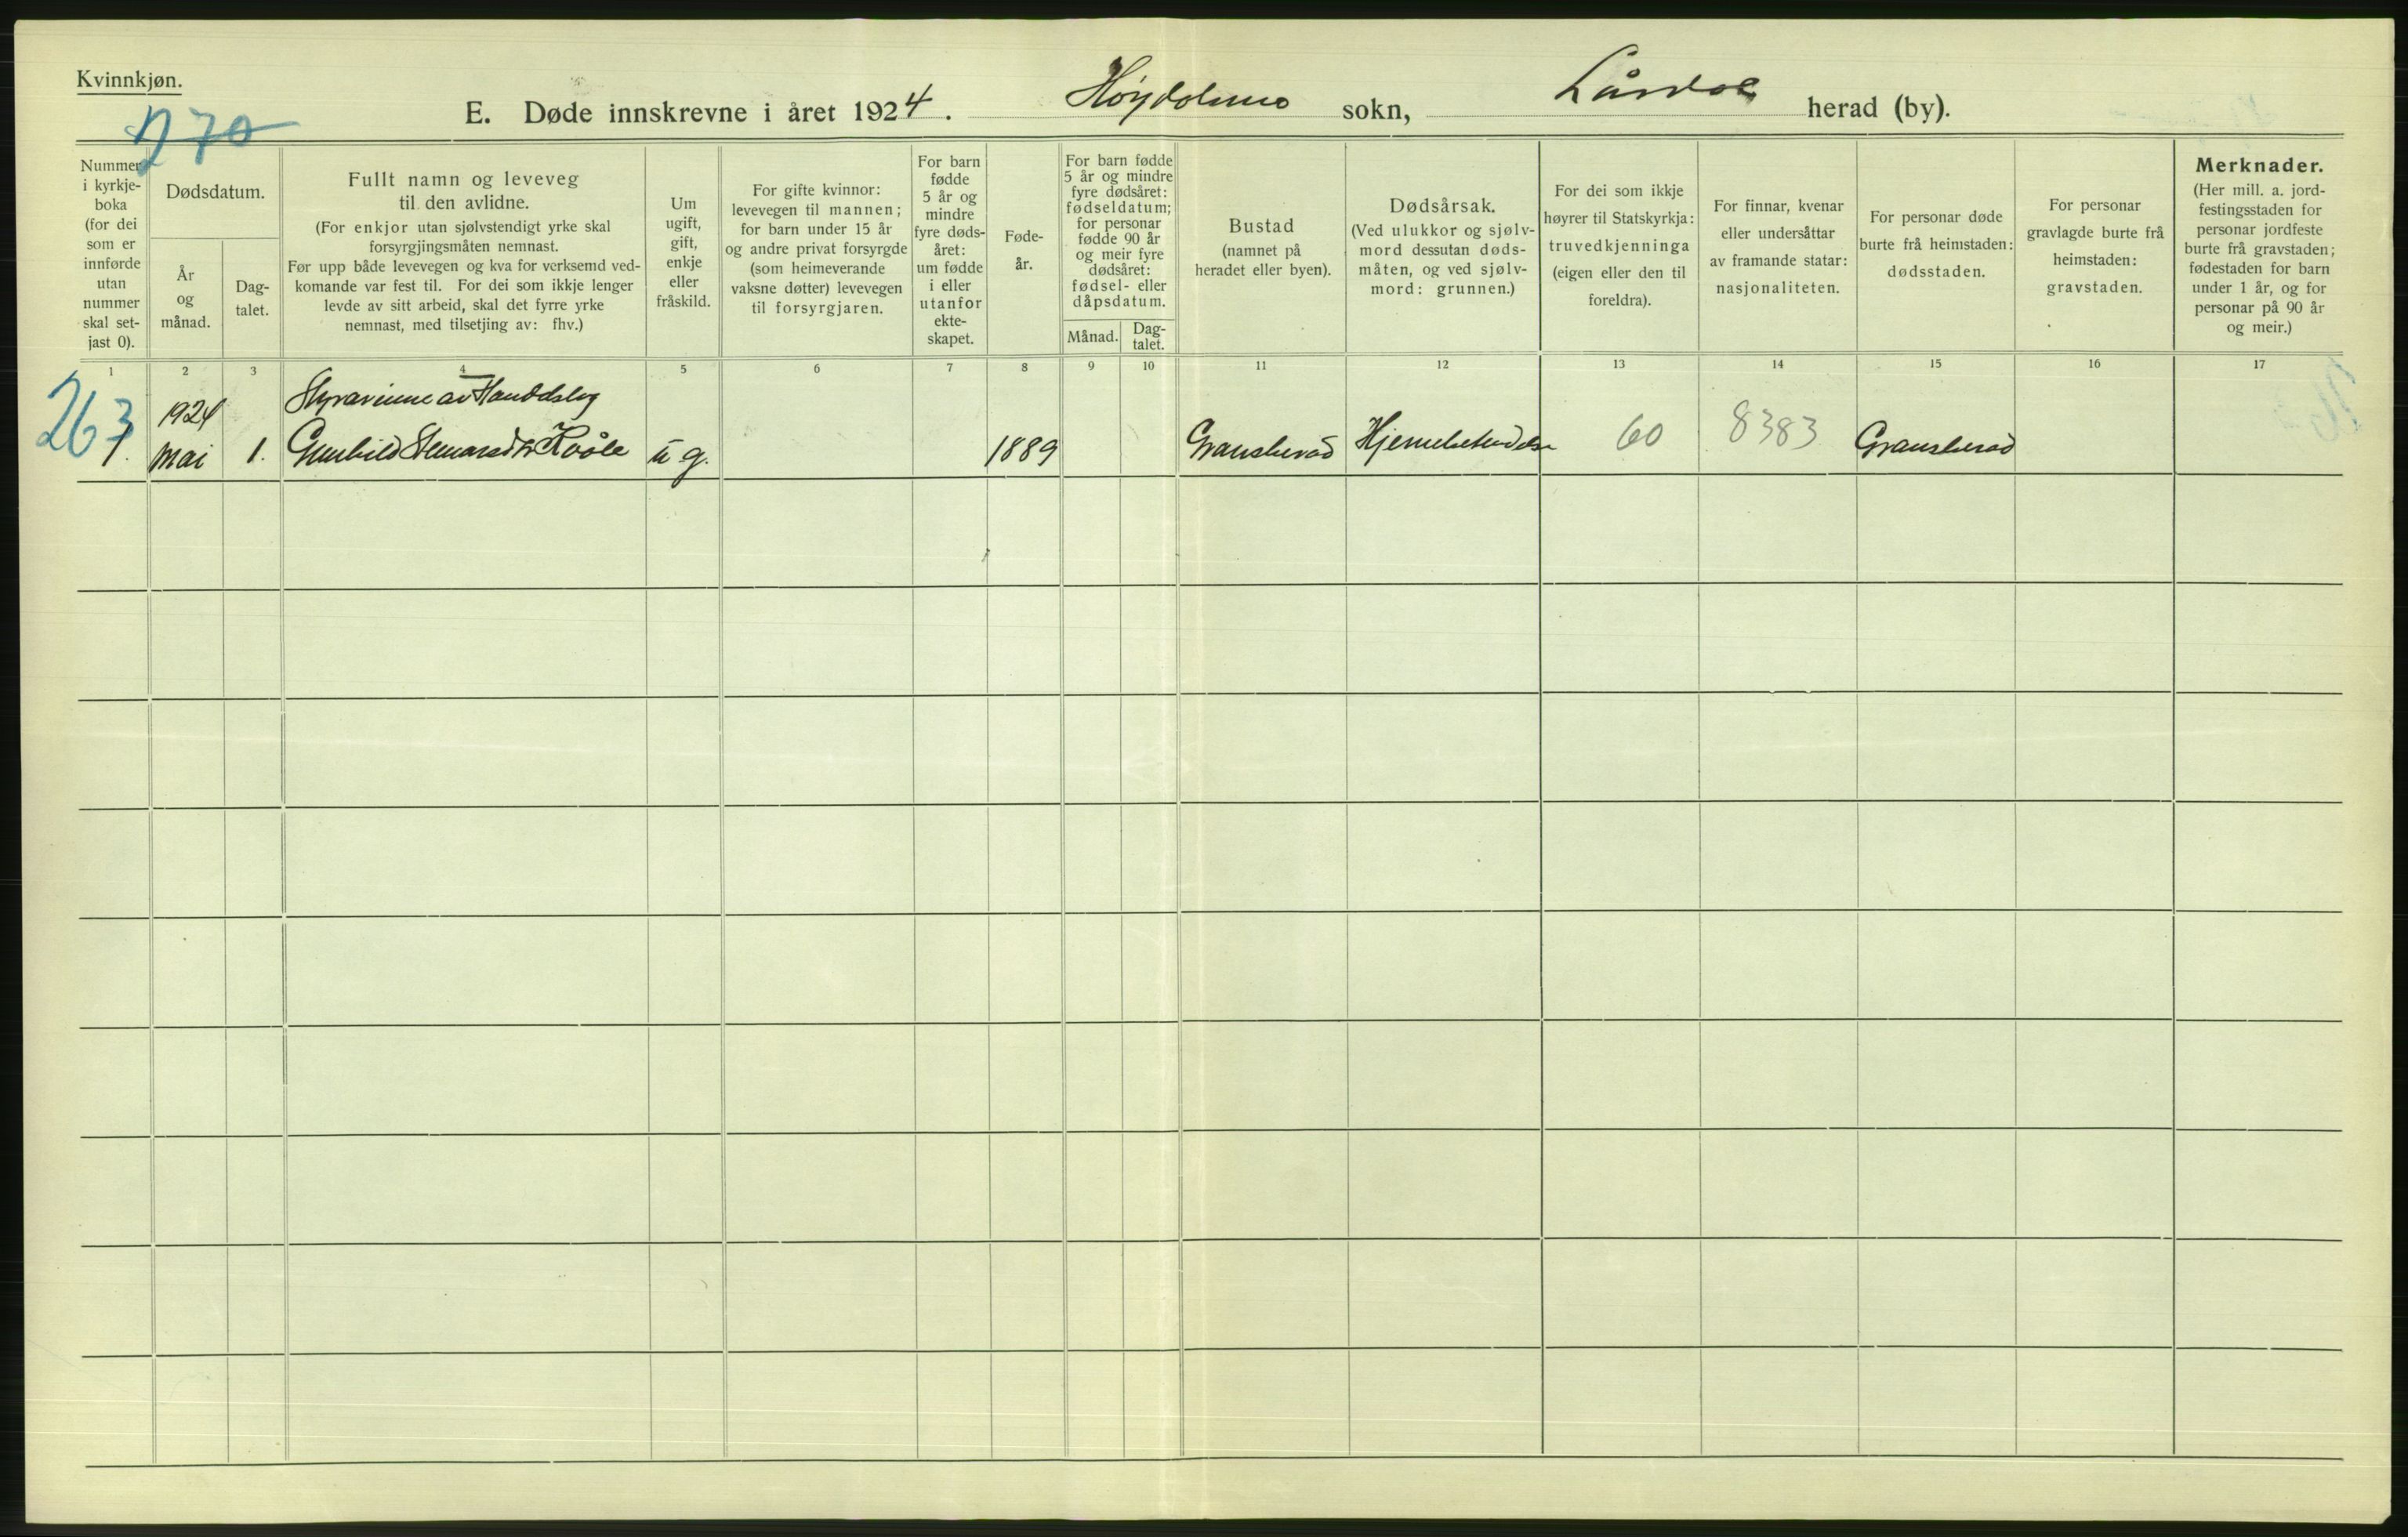 Kvinnkjøn.
270
E. Døde innskrevne i året 1924. Høydalsmo sokn, Lårdal herad (by).
Nummer i kyrkje-boka (for dei som er innførde utan nummer skal set-jast 0).
Dødsdatum.
År og månad.
Dag-talet.
Fullt namn og leveveg til den avlidne.
(For enkjor utan sjølvstendigt yrke skal forsyrgjingsmåten nemnast.
Før upp både levevegen og kva for verksemd ved-komande var fest til. For dei som ikkje lenger levde av sitt arbeid, skal det fyrre yrke nemnast, med tilsetjing av: fhv.)
Um ugift, gift, enkje eller fråskild.
For gifte kvinnor: levevegen til mannen; for barn under 15 år og andre privat forsyrgde (som heimeverande vaksne døtter) levevegen til forsyrgjaren.
For barn fødde 5 år og mindre fyre døds-året: um fødde i eller utanfor ekte-skapet.
Føde-år.
For barn fødde 5 år og mindre fyre dødsåret: fødseldatum; for personar fødde 90 år og meir fyre dødsåret: fødsel- eller dåpsdatum.
Månad.
Dag-talet.
Bustad
(namnet på heradet eller byen).
Dødsårsak.
(Ved ulukkor og sjølv-mord dessutan døds-måten, og ved sjølv-mord: grunnen.)
For dei som ikkje høyrer til Statskyrkja: truvedkjenninga (eigen eller den til foreldra).
For finnar, kvenar eller undersåttar av framande statar: nasjonaliteten.
For personar døde burte frå heimstaden: dødsstaden.
For personar gravlagde burte frå heimstaden: gravstaden.
Merknader.
(Her mill. a. jord-festingsstaden for personar jordfeste burte frå gravstaden; fødestaden for barn under 1 år, og for personar på 90 år og meir.)
1 2 3 4 5 6 7 8 9 10 11 12 13 14 15 16 17
263
1924 Styrarinne av
1. mai 1. Gunhild Kvåle ug. 1889 Gransherad 60 8383 Gransherad